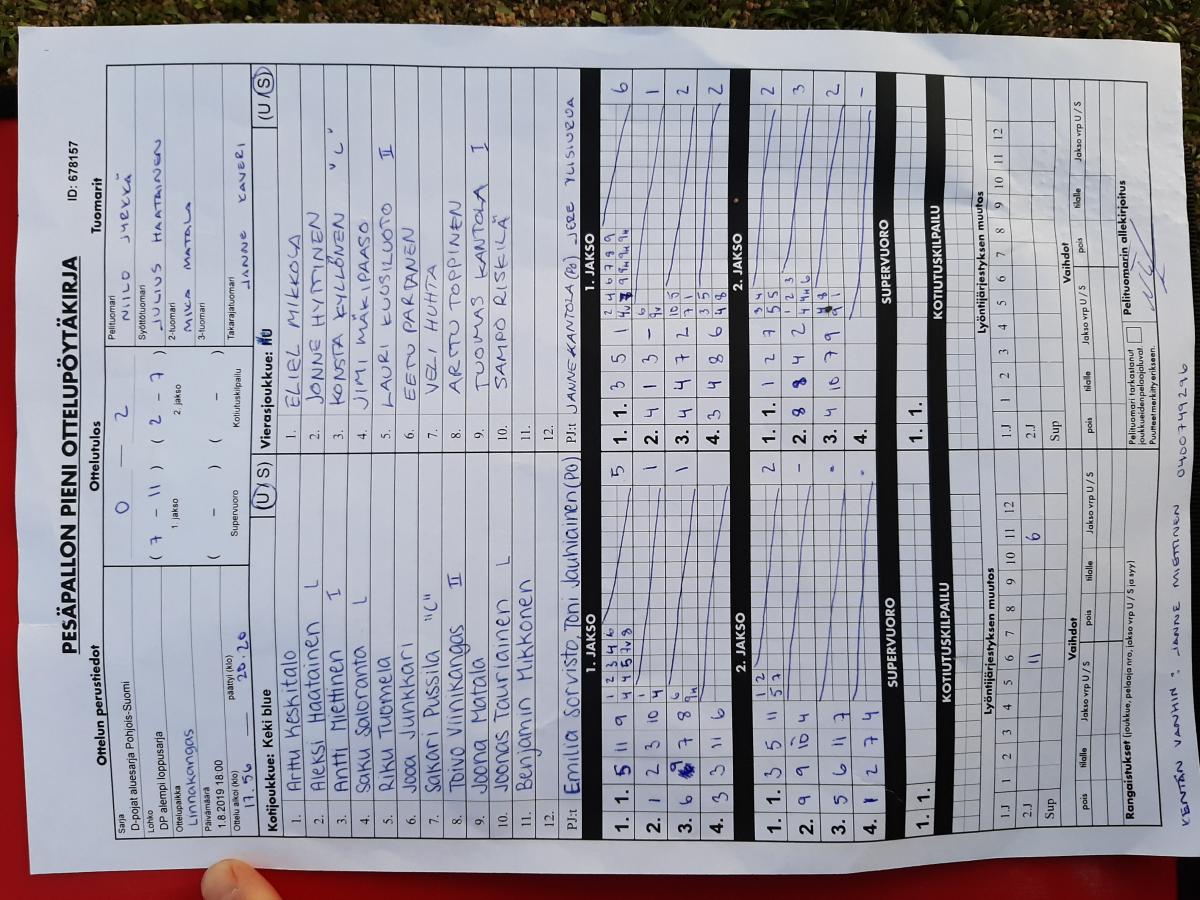 PESÄPALLON PIENI OTTELUPÖYTÄKIRJA
ID: 678157
Ottelun perustiedot
Ottelutulos
Tuomarit
Sarja
D-pojat aluesarja Pohjois-Suomi
Lohko
DP alempi loppusarja
Ottelupaikka
Linnakangas
Päivämäärä
1.8.2019 18:00
Ottelu alkoi (klo) päättyi (klo)
17.56 — 20.20
0 — 2
( 7 - 11 ) ( 2 - 7 )
1. jakso 2. jakso
( - ) ( - )
Supervuoro Kotiutuskilpailu
Pelituomari
NIILO JYRKKÄ
Syöttötuomari
JULIUS HAATAINEN
2-tuomari
MIKA MATALA
3-tuomari
Takarajatuomari
JANNE KAVERI
Kotijoukkue: Keki blue (U / S)
1. Arttu Keskitalo
2. Aleksi Haatainen L
3. Antti Miettinen I
4. Saku Saloranta L
5. Riku Tuomela
6. Jooa Junkkari
7. Sakari Pussila "C"
8. Toivo Viinikangas II
9. Joona Matala
10. Joonas Tauriainen L
11. Benjamin Mikkonen
12.
PJ:t Emilia Sorvisto, Toni Jauhiainen (PO)
Vierasjoukkue: (U / S)
1. ELIEL MIKKOLA
2. JONNE HYTTINEN
3. KONSTA KYLLÖNEN "C"
4. JIMI MÄKIPAASO
5. LAURI KUUSILUOTO II
6. EETU PARTANEN
7. VELI HUHTA
8. ARTTU TOPPINEN
9. TUOMAS KANTOLA I
10. SAMPO RISKILÄ
11.
12.
PJ:t JANNE KANTOLA (PO) JERE YLISIURUA
1. JAKSO
1. 1. 5 11 9 1 2 3 4 6 5
4 4 5 7v 8
2. 1 2 3 10 1 1
4
3. 6 7 8 6 1
4. 3 3 11 6
1. JAKSO
1. 1. 3 5 1 2 4 6 7 8 9 6
2. 4 1 3 - 6 1
3. 4 4 7 2 10 5 2
7 1
4. 3 4 8 6 3 5 2
4 8
2. JAKSO
1. 1. 3 5 11 1 2 2
5 7
2. 9 9 10 4 -
3. 5 6 11 7 -
4. 1 2 7 4 -
2. JAKSO
1. 1. 1 2 7 3 4 2
5 5
2. 8 8 4 2 1 2 3 3
3. 4 10 7 9 2
4. -
SUPERVUORO
1. 1.
SUPERVUORO
1. 1.
KOTIUTUSKILPAILU
KOTIUTUSKILPAILU
Lyöntijärjestyksen muutos
1.J 1 2 3 4 5 6 7 8 9 10 11 12
2.J 11 6
Sup
Lyöntijärjestyksen muutos
1.J 1 2 3 4 5 6 7 8 9 10 11 12
2.J
Sup
Vaihdot
pois tilalle Jakso vrp U / S pois tilalle Jakso vrp U / S
Vaihdot
pois tilalle Jakso vrp U / S pois tilalle Jakso vrp U / S
Rangaistukset (joukkue, pelaaja nro, jakso vrp U / S ja syy)
Pelituomari tarkastanut joukkueidenpelaajaluvat
Puutteet merkitty erikseen.
Pelituomarin allekirjoitus
KENTÄN VANHIN : JANNE MIETTINEN 0400749296